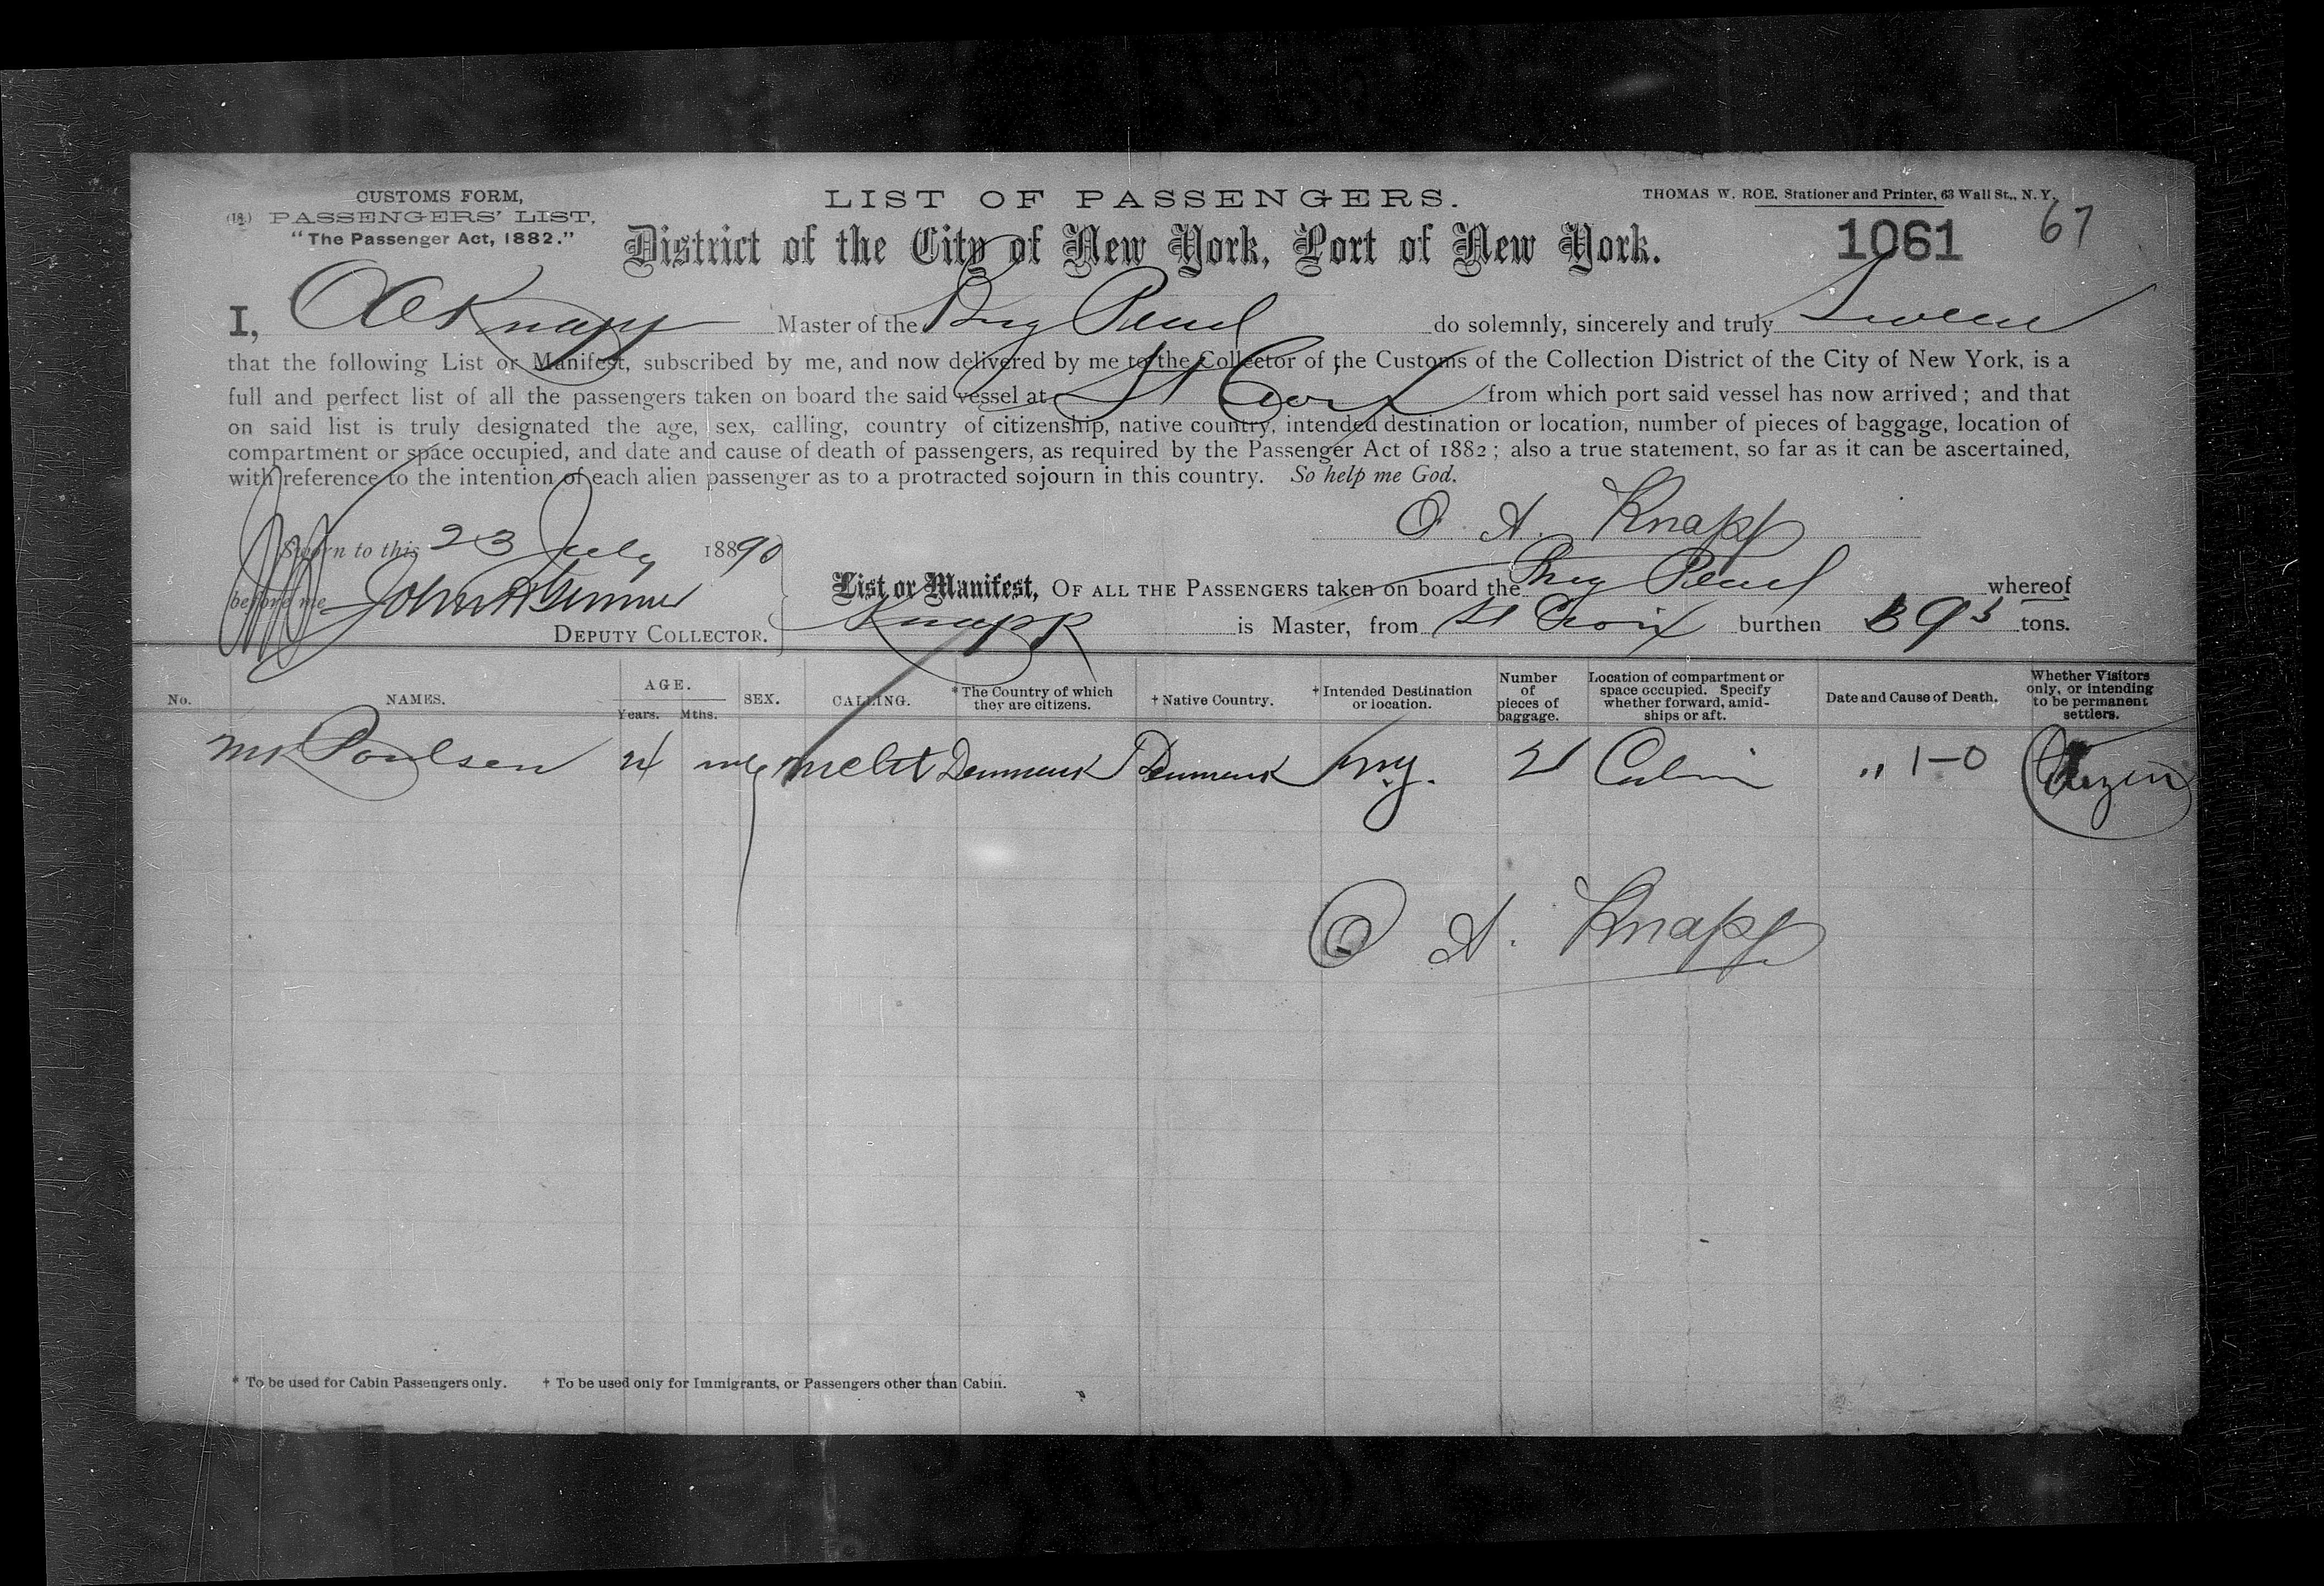 CUSTOMS FORM,
(18.) PASSENGERS' LIST.
"The Passenger Act, 1882."
LIST OF PASSENGERS.
THOMAS W. ROE, Stationer and Printer, 63 Wall St., N. Y.
District of the City of New York, Port of New York.
1061
67
I, O A Knapp Master of the Brig Pearl do solemnly, sincerely and truly Swear
that the following List or Manifest, subscribed by me, and now delivered by me to the Collector of the Customs of the Collection District of the City of New York, is a
full and perfect list of all the passengers taken on board the said vessel at St Croix from which port said vessel has now arrived; and that
on said list is truly designated the age, sex, calling, country of citizenship, native country, intended destination or location, number of pieces of baggage, location of
compartment or space occupied, and date and cause of death of passengers, as required by the Passenger Act of 1882; also a true statement, so far as it can be ascertained,
with reference to the intention of each alien passenger as to a protracted sojourn in this country. So help me God.
O. A. Knapp
Sworn to this 23 July 1890
before me John
DEPUTY COLLECTOR.
List or Manifest, OF ALL THE PASSENGERS taken on board the Brig Pearl whereof
Knapp is Master, from St Croix burthen tons.
No. NAMES. AGE. Years. Mths. SEX. CALLING. * The Country of which they are citizens. † Native Country. † Intended Destination or location. Number of pieces of baggage. Location of compartment or space occupied. Specify whether forward, amidships or aft. Date and Cause of Death. Whether Visitors only, or intending to be permanent settlers.
Mr Poulsen Denmark Denmark N.Y. Cabin " 1-0 Citizen
O A. Knapp
* To be used for Cabin Passengers only. † To be used only for Immigrants, or Passengers other than Cabin.